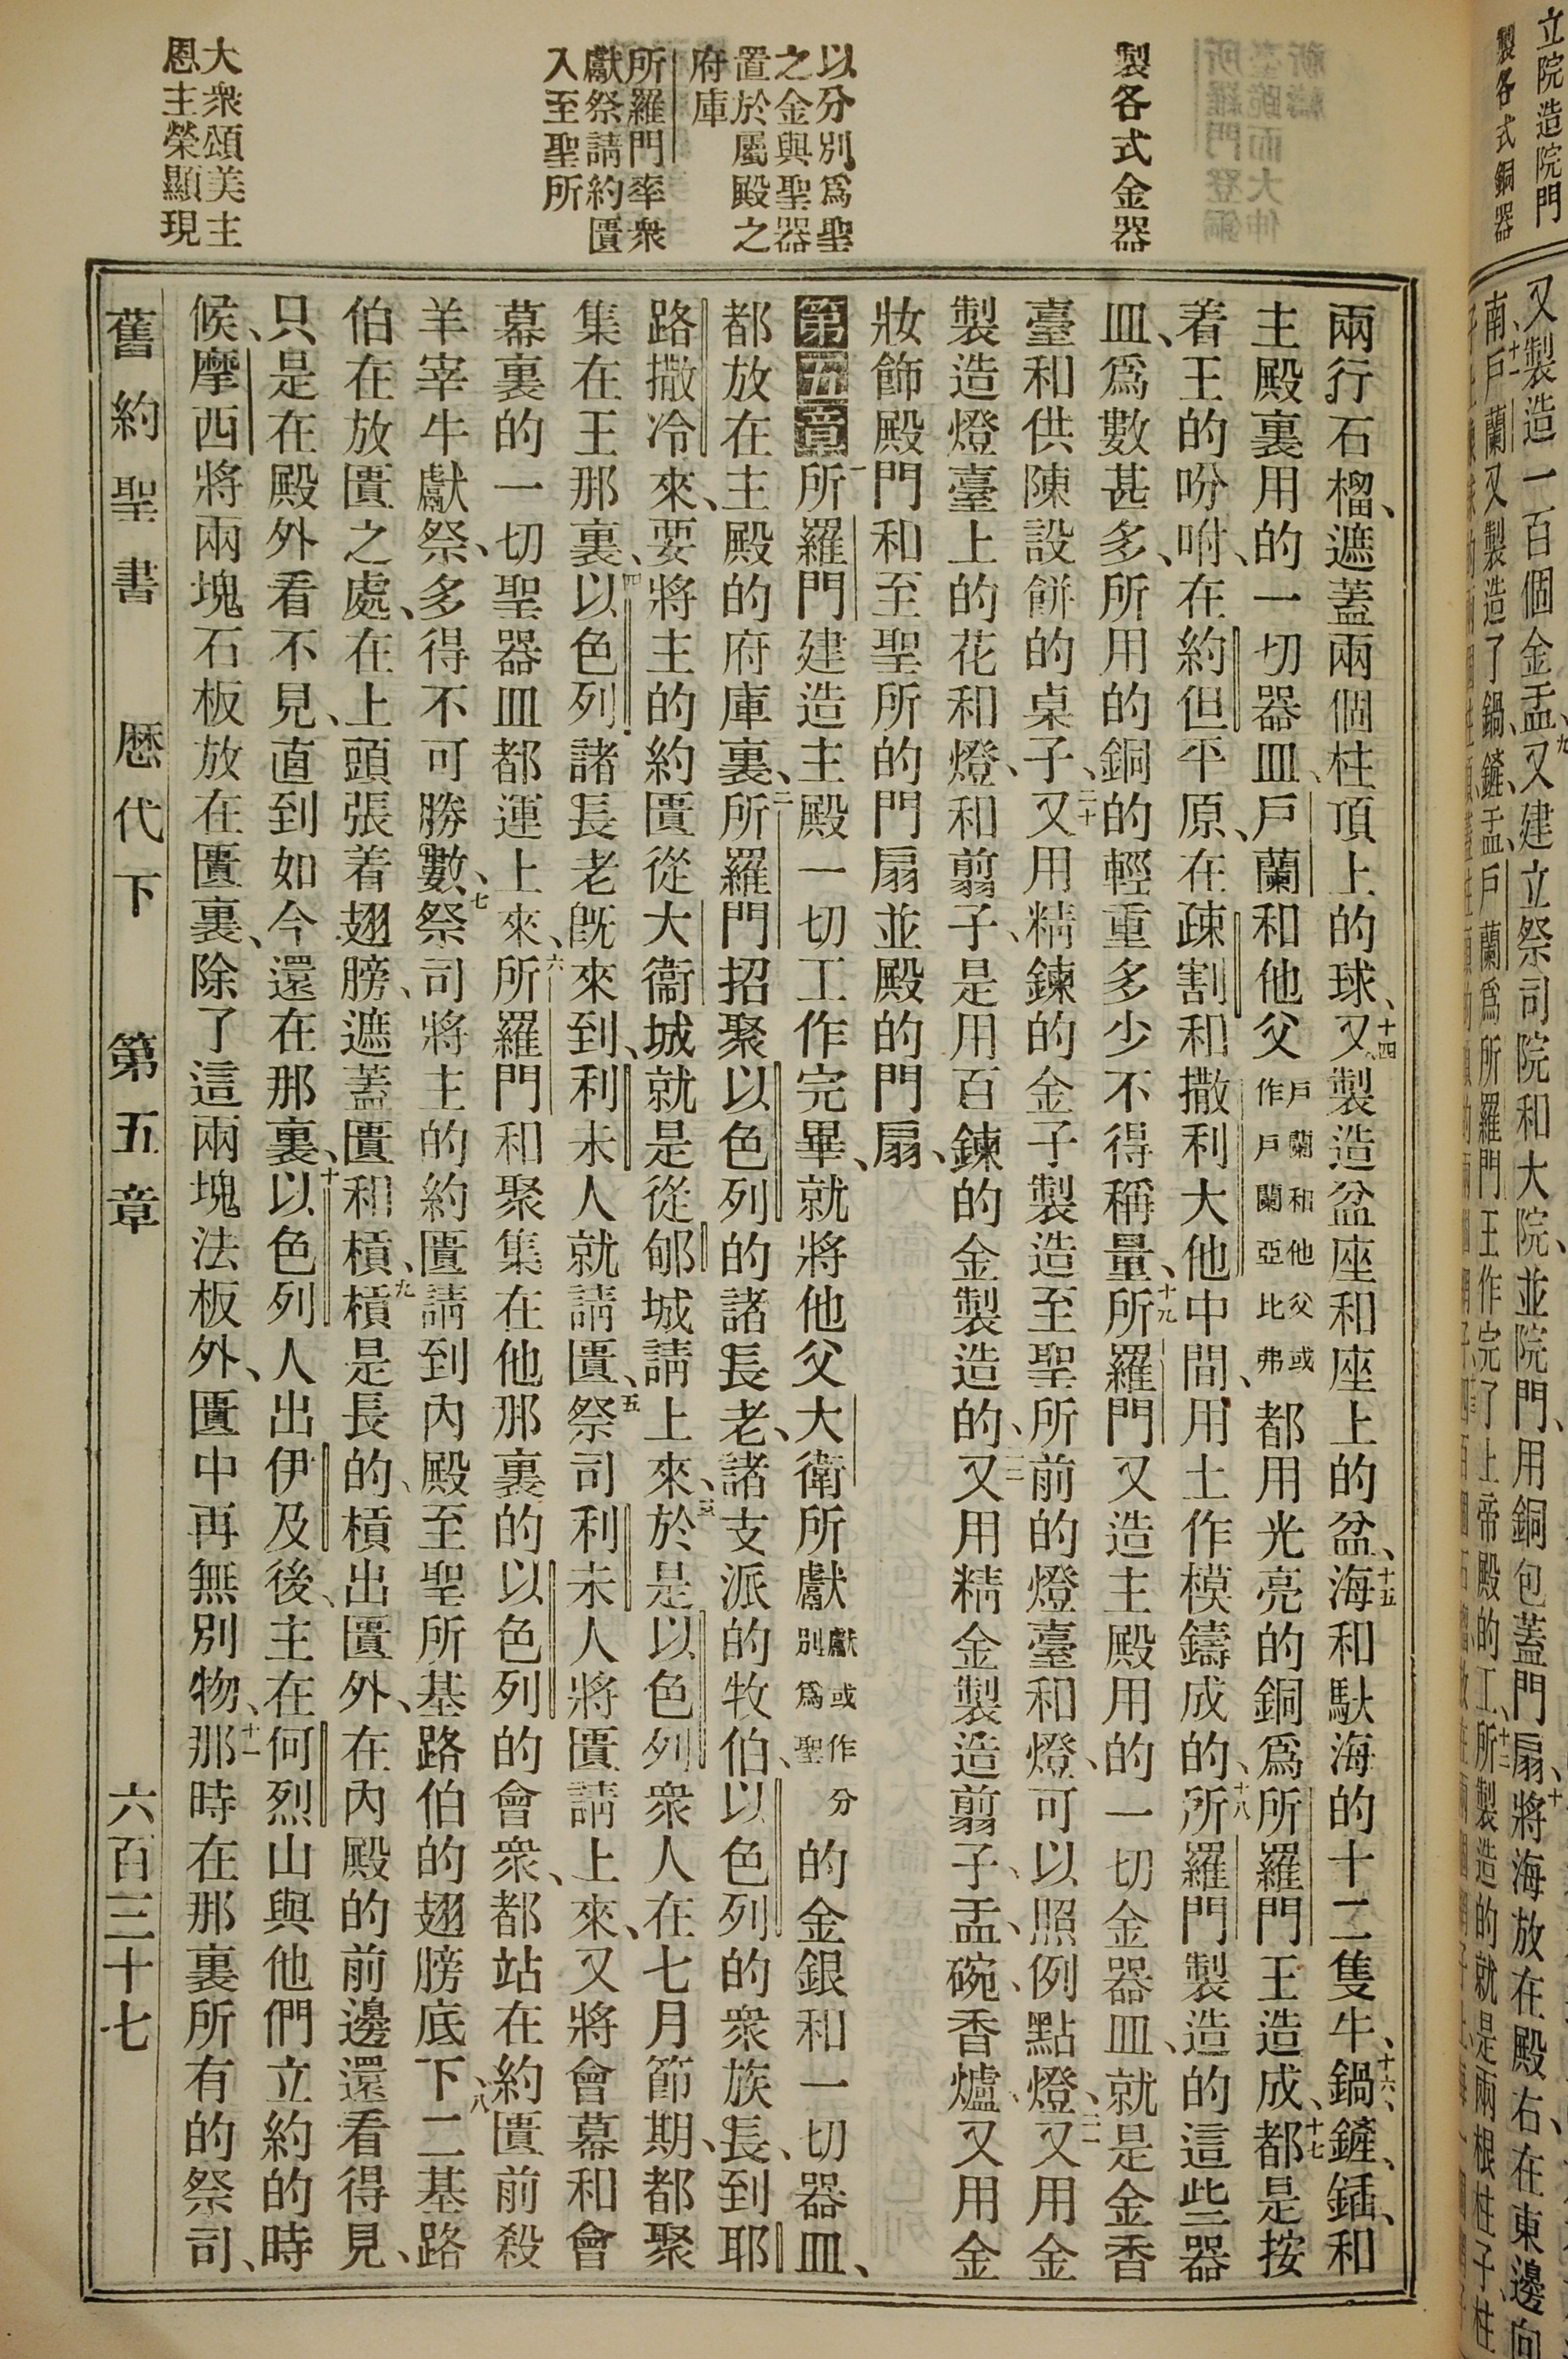 立院造院門
製各式銅器
製各式金器
以分別爲聖
之金與聖器
置於屬殿之
府庫
所羅門率衆
獻祭請約匱
入至聖所
大衆頌美主
恩主榮顯現
又製造一百個金盂、九又建立祭司院和大院、並院門、用銅包蓋門扇、十將海放在殿右在東邊向
南、十一戶蘭又製造了鍋、鏟、盂、戶蘭爲所羅門王作完了上帝殿的工、十二所製造的就是兩根柱子柱
兩行石榴、遮蓋兩個柱頂上的球、十四又製造盆座和座上的盆、十五海和馱海的十二隻牛、十六鍋、鏟、鍤、和
主殿裏用的一切器皿、戶蘭和他父戶蘭和他父或作戶蘭亞比弗都用光亮的銅爲所羅門王造成、十七都是按
着王的吩咐、在約但平原、在疎割和撒利大他中間、用土作模鑄成的、十八所羅門製造的這些器
皿、爲數甚多、所用的銅的輕重多少不得稱量、十九所羅門又造主殿用的一切金器皿、就是金香
臺和供陳設餅的桌子、二十又用精鍊的金子製造至聖所前的燈臺和燈、可以照例點燈、二一又用金
製造燈臺上的花和燈、和剪子、是用百鍊的金製造的、二二又用精金製造剪子、盂、碗、香爐、又用金
妝飾殿門和至聖所的門扇並殿的門扇、
第五章一所羅門建造主殿一切工作完畢、就將他父大衛所獻獻或作分別爲聖的金銀和一切器皿、
都放在主殿的府庫裏、二所羅門招聚以色列的諸長老、諸支派的牧伯、以色列的衆族長、到耶
路撒冷來、要將主的約匱從大衞城就是從郇城請上來、三於是以色列衆人在七月節期、都聚
集在王那裏、四以色列諸長老旣來到、利未人就請匱、五祭司利未人將匱請上來、又將會幕和會
幕裏的一切聖器皿都運上來、六所羅門和聚集在他那裏的以色列的會衆、都站在約匱前殺
羊宰牛獻祭、多得不可勝數、七祭司將主的約匱請到內殿至聖所基路伯的翅膀底下、八二基路
伯在放匱之處、在上頭張着翅膀、遮蓋匱和槓、九槓是長的、槓出匱外、在內殿的前邊還看得見、
只是在殿外看不見、直到如今還在那裏、十以色列人出伊及後、主在何烈山與他們立約的時
候、摩西將兩塊石板放在匱裏、除了這兩塊法板外、匱中再無別物、十一那時在那裏所有的祭司、
舊約聖書 歷代下 第五章 六百三十七